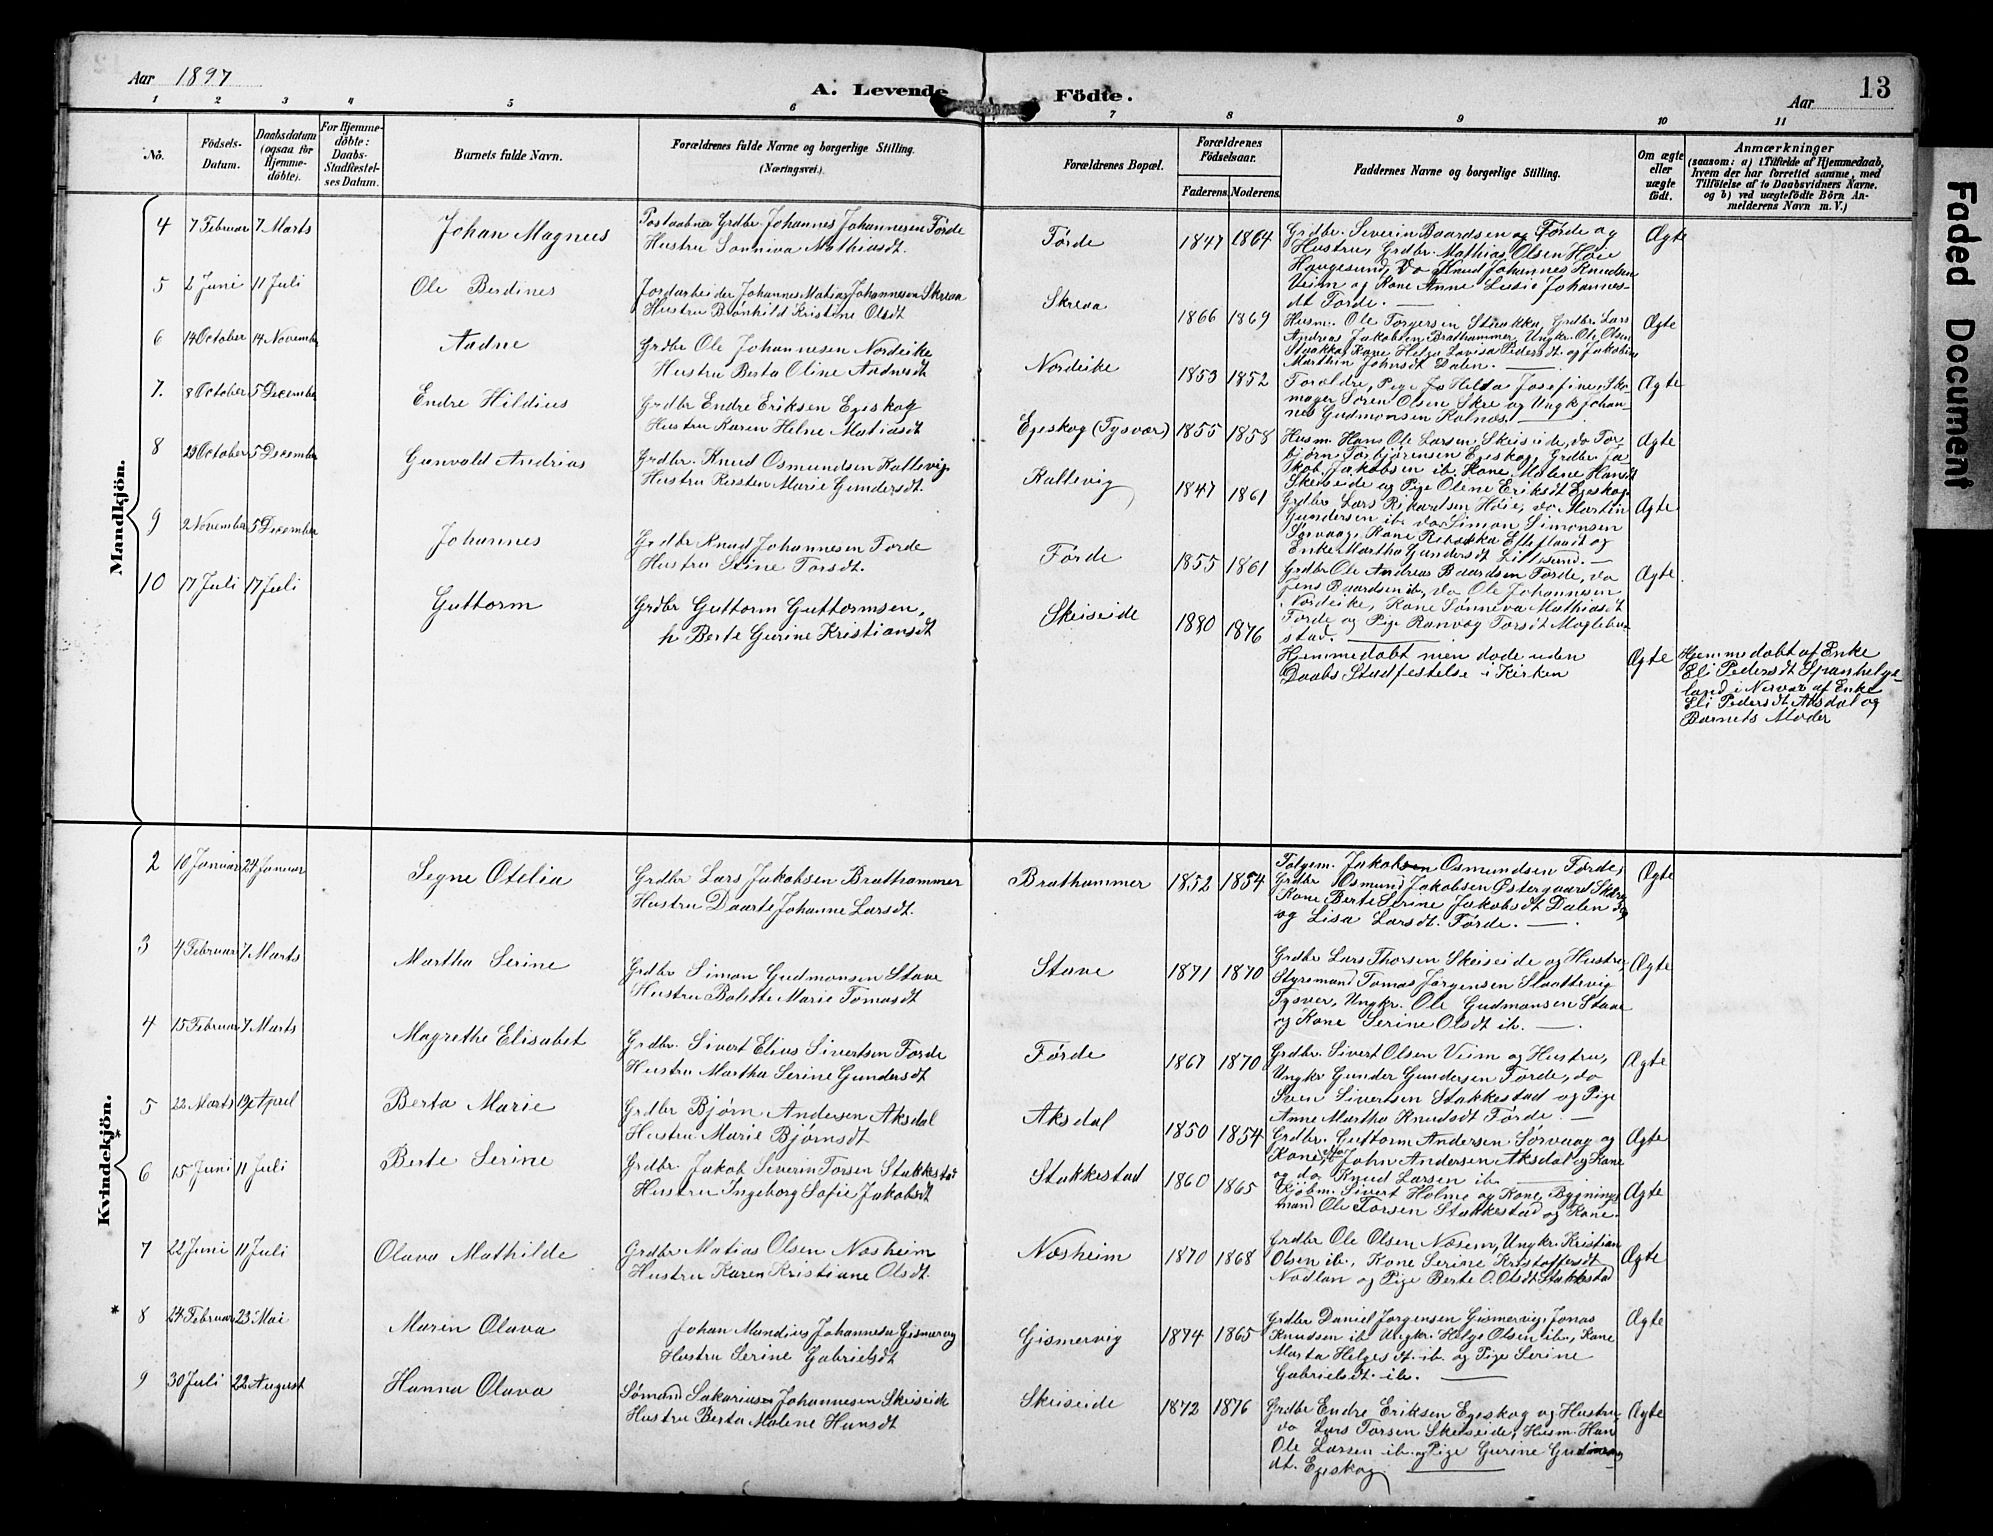 Aar 1897
A. Levende Födte.
Aar
13
1 2 3 4 5 6 7 8 9 10 11
No.
Födsels-Datum.
Daabsdatum (ogsaa for Hjemme-döbte).
For Hjemme-döbte: Daabs-Stadfæstel-ses Datum.
Barnets fulde Navn.
Forældrenes fulde Navne og borgerlige Stilling. (Næringsvei.)
Forældrenes Bopæl.
Forældrenes Födselsaar.
Faderens. Moderens.
Faddernes Navne og borgerlige Stilling.
Om ægte eller uægte födt.
Anmærkninger
(saasom: a) i Tilfælde af Hjemmedaab, hvem der har forrettet samme, med Tilföielse af to Daabsvidners Navne. og b) ved uægtefödte Börn An-melderens Navn m. V.)
Faded Document
Mandkjön.
4 7 Februar 7 Marts Johan Magnus
Postaabner Grdbr. Johannes Johannesen Førde
Hustru Sonniva Mathiasdt.
Førde 1847 1864
Grdbr. Severin Baardsen og Førde og
Hustru, Grdbr. Mathias Olsen Høie
Haugesund, do Knud Johannes Knudsen
Veim og Kone Anne Lusie Johannes-
dt Førde. —
Ægte
5 2 Juni 11 Juli Ole Berdines
Jordarbeider Johannes Matias Johannesen Skreva
Hustru Brønhild Kristine Olsdt
Skreva 1866 1869
Husm. Ole Torgersen Staakka, Grdbr. Lars
Andreas Jakobsen Brathammer, Ungkr. Ole Olsen
Staakka, Kone Helga Lovisa Pedersdt. og Jakobine
Marthin Johnsdt Dalen. —
Ægte
6 14 October 14 November Aadne
Grdbr Ole Johannesen Nordeike
Hustru Berta Oline Aadnesdt
Nordeike 1853 1852
Forældre, Pige Helda Josefine, Sko-
mager Søren Olsen Skre og Ungk Johan-
nes Gudmonsen Kalnos. —
Ægte
7. 8 October 5 December Endre Hildius
Grdbr Endre Eriksen Egeskog
Hustru Karen Helne Matiasdt
Egeskog (Tysvær) 1855 1858
Husm. Hans Ole Larsen Skeiseide, do Tor
bjørn Torbjørnsen Egeskog, Grdbr. Ja-
kob Jakobsen ib. Kone Malene Hansdt
Skeiseide og Pige Olene Eriksdt Egeskog.
Ægte
8 23 October 5 December Gunvald Andrias
Grdbr. Knud Osmundsen Kallevig
Hustru Kirsten Marie Gundersdt.
Kallevig 1847 1861
Grdbr Lars Rikardsen Høie, do Martin
Gundersen ib. do Simon Simonsen
Sørvaag, Kone Rebekka Ellefsadt og
Enke Martha Gundersdt Lillesund. —
Ægte
9 2 November 5 December Johannes
Grdbr Knud Johannesen Førde
Hustru Seine Torsdt.
Førde 1855 1861
Grdbr Ole Andreas Baardsen Førde, do
Jens Baardsen ib, do Ole Johannesen
Nordeike, Kone Sønneva Mathiasdt
Førde og Pige Ranvog Torsdt Moglebu-
stad. —
Ægte.
10 17 Juli 17 Juli Guttorm
Grdbr Guttorm Guttormsen,
h Berte Gurine Kristiansdt
Skeiseide 1880 1876
Hjemmedøbt men døde uden
Daabs Stadfestelse i Kirken
Ægte
Hjemmedøbt af Enke
Eli Pedersdt Spanhelge-
land i Nærvær af Enke
Eli Pedersdt Aksdal og
Barnets Moder
Kvindekjön.
2 10 Januar 24 Januar Segne Otelia
Grdbr Lars Jakobsen Brathammer
Hustru Daarte Johanne Larsdt.
Brathammer 1852 1854
Følgem. Jakobsen Osmundsen Førde,
Grdbr Osmund Jakobsen Østergaard
Kone Berte Serine Jakobsdt Dalen
og Lisa Larsdt. Førde. —
Ægte
3 4 Februar 7 Marts Martha Serine
Grdbr Simon Gudmonsen Stave
Hustru Bolette Marie Tomasdt
Stave 1871 1870
Grdbr Lars Thorsen Skeiseide og Hustru,
Styremand Tomas Jørgensen Slaattevig
Tysver, Ungkr. Ole Gudmonsen Stave
og Kone Serine Olsdt ib. —
Ægte
4 15 Februar 7 Marts Magrethe Elisabet
Grdbr. Sivert Elius Sivertsen Førde
Hustru Martha Serine Gundersdt
Førde 1867 1870
Grdbr. Sivert Olsen Veim og Hustru,
Ungkr Gunder Gundersen Førde, do
Sven Sivertsen Stakkestad og Pige
Anne Martha Knudsdt Førde. —
Ægte
5 22 Marts 19 April Berta Marie
Grdbr Bjørn Andersen Aksdal
Hustru Marie Bjørnsdt
Aksdal 1850 1854
Grdbr. Guttorm Andersen Sørvaag og
Kone, do John Andersen Aksdal og Kone
og do Knud Larsen ib. —
Ægte
*
6 15 Juni 11 Juli Berte Serine
Grdbr. Jakob Severin Torsen Stakkestad
Hustru Ingeborg Sofie Jakobsdt
Stakkestad 1860 1865
Kjøbm. Sivert Holme og Kone, Bygnings
mand Ole Torsen Stakkestad og Kone.
Ægte
7 22 Juni 11 Juli Olava Mathilde
Grdbr Matias Olsen Næsheim
Hustru Karen Kristiane Olsdt.
Næsheim 1870 1868
Grdbr Ole Olsen Næsem, Ungkr. Kristian
Olsen ib., Kone Serine Kristoffersdt
Nodlan og Pige Berte O. Olsdt Stakkestad
Ægte
*
8 24 Februar 23 Mai Maren Olava
Johan Mandius Johannesn Gismervig
Hustru Serine Gabrielsdt
Gismervig 1874 1865
Grdbr Daniel Jørgensen Gismervig, Jonas
Knudsen ib. Ungkr. Helge Olsen ib., Kone
Marta Helgesdt. ib. og Pige Serine
Gabrielsdt. ib. —
Ægte
9 30 Juli 22 August Hanna Olava
Sømand Sakarias Johannesen Skeiseide
Hustru Berta Malene Hansdt
Skeiseide 1872 1876
Grdbr Endre Eriksen Egeskog og Hustru,
do Lars Torsen Skeiseide, Husm. Han
Ole Larsen ib. og Pige Gurine
dt. Egeskog —
Ægte